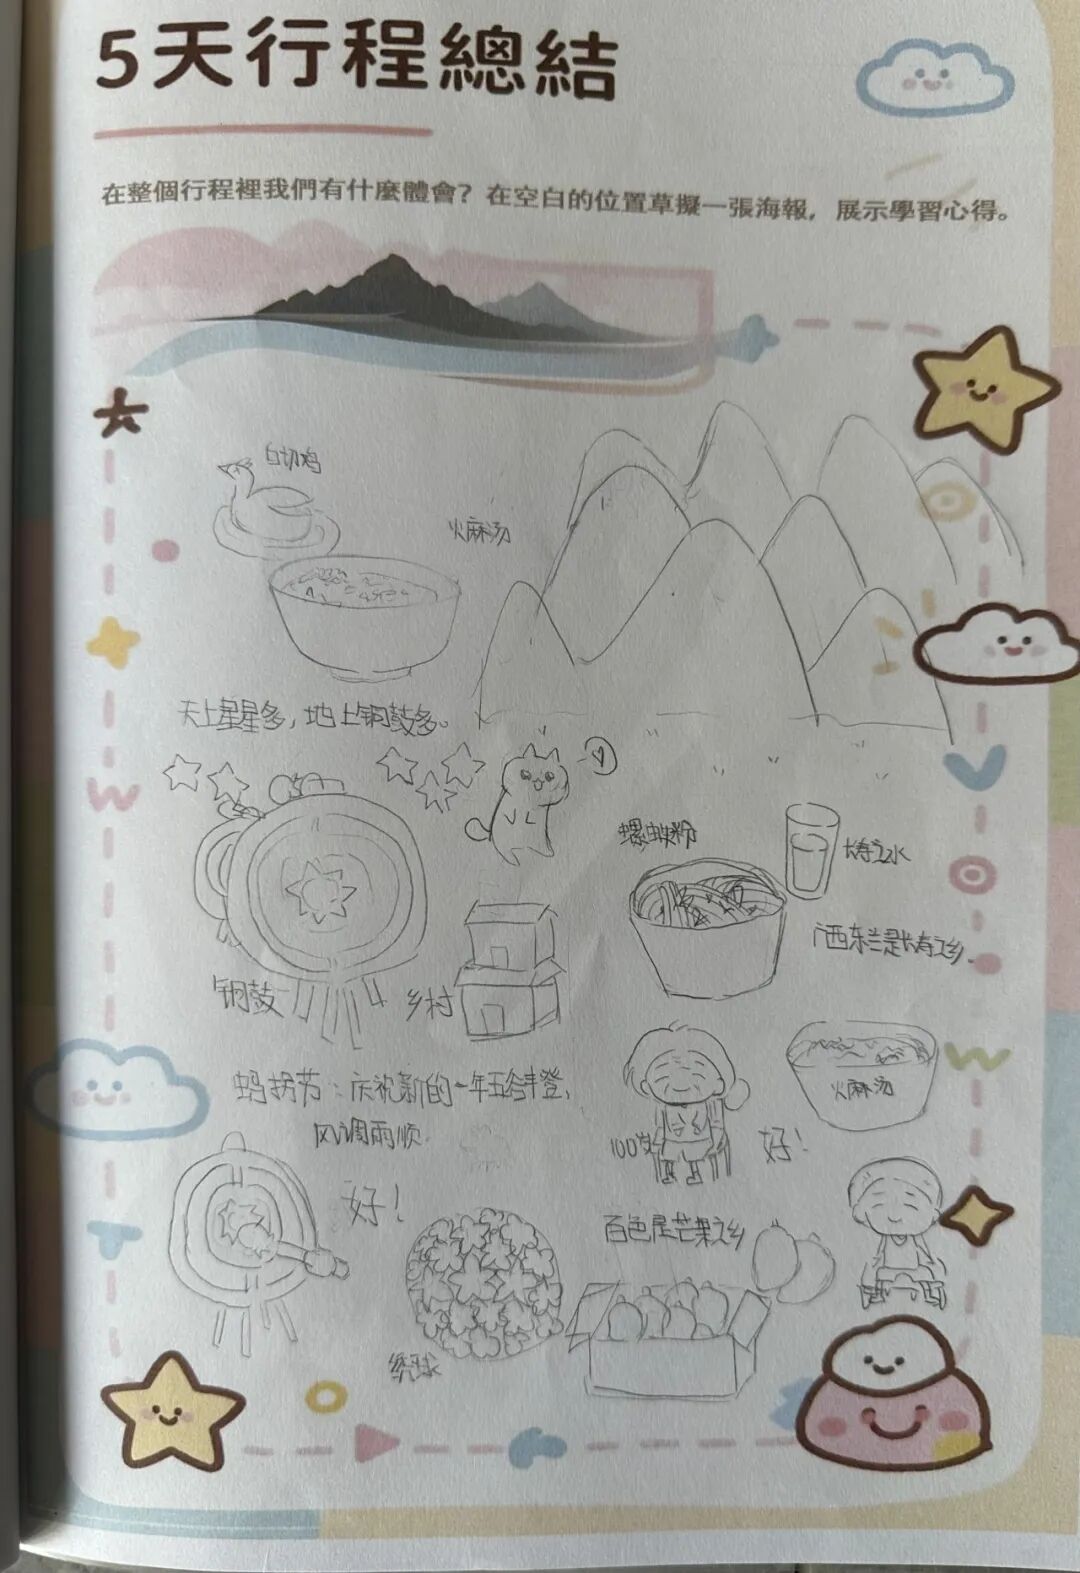 5天行程總結
在整個行程裡我們有什麼體會？在空白的位置草擬一張海報，展示學習心得。
白切鸡
火麻汤
天上星星多，地上铜鼓多。
螺蛳粉
长寿之水
广西东兰是长寿之乡.
铜鼓
乡村
蚂拐节：庆祝新的一年五谷丰登，
风调雨顺
火麻汤
100岁
好！
好！
百色是芒果之乡
绣球